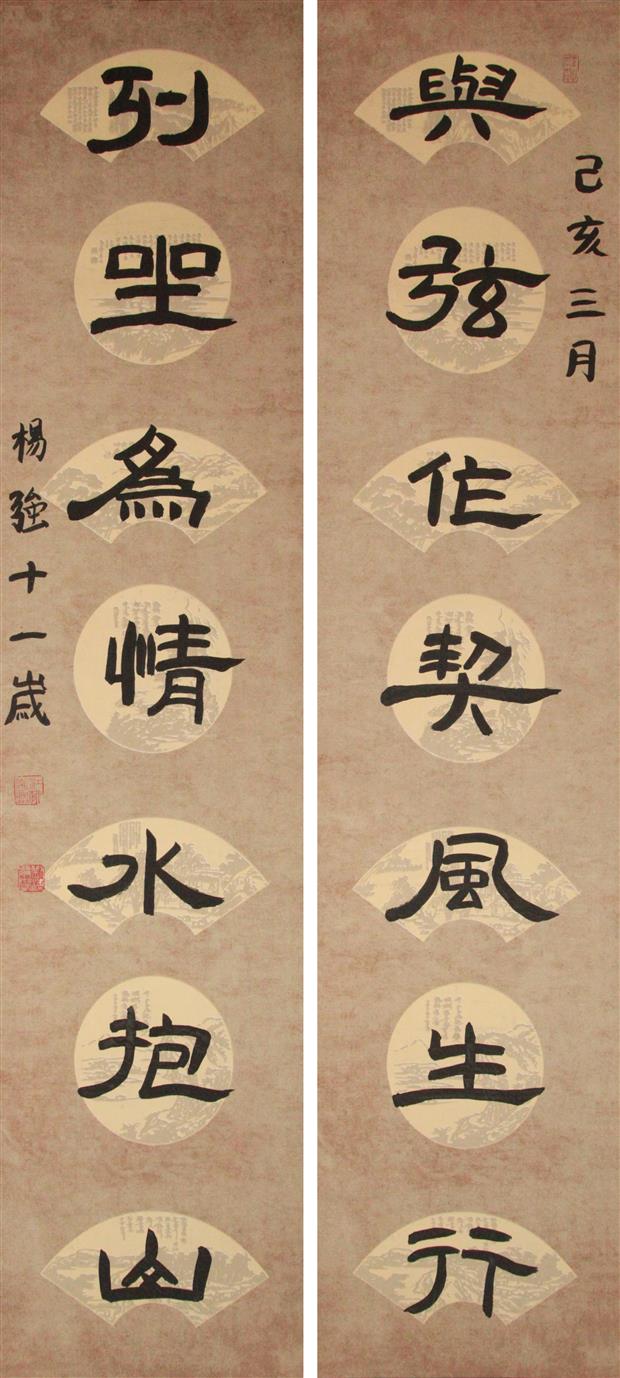 己亥三月
與弦作契風生行
列坐爲情水抱山
楊強十一歲